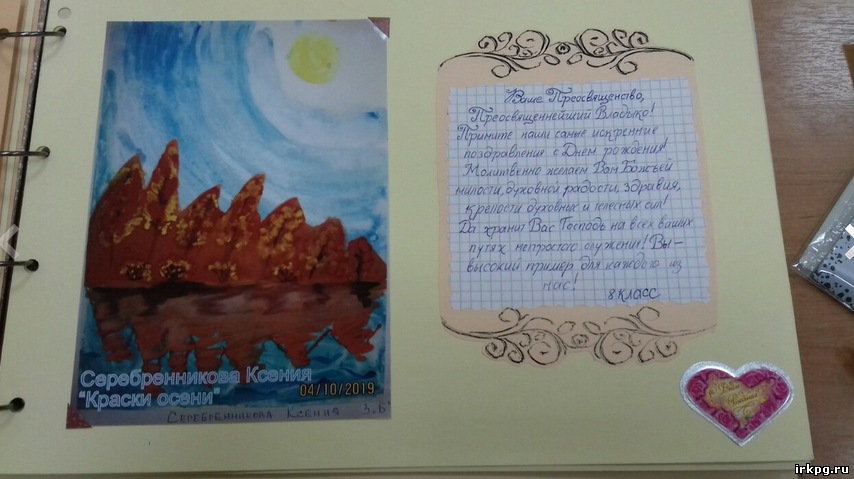 Серебренникова Ксения
"Краски осени"
04/10/2019
Серебренникова Ксения 3.б
Ваше Преосвященство,
Преосвященнейший Владыко!
Примите наши самые искренние
поздравления с Днем рождения!
Молитвенно желаем Вам Божьей
милости, духовной радости, здравия,
крепости духовных и телесных сил!
Да хранит Вас Господь на всех ваших
путях непростого служения! Вы –
высокий пример для каждого из
нас!
8 класс
с Днём
Рождения
irkpg.ru